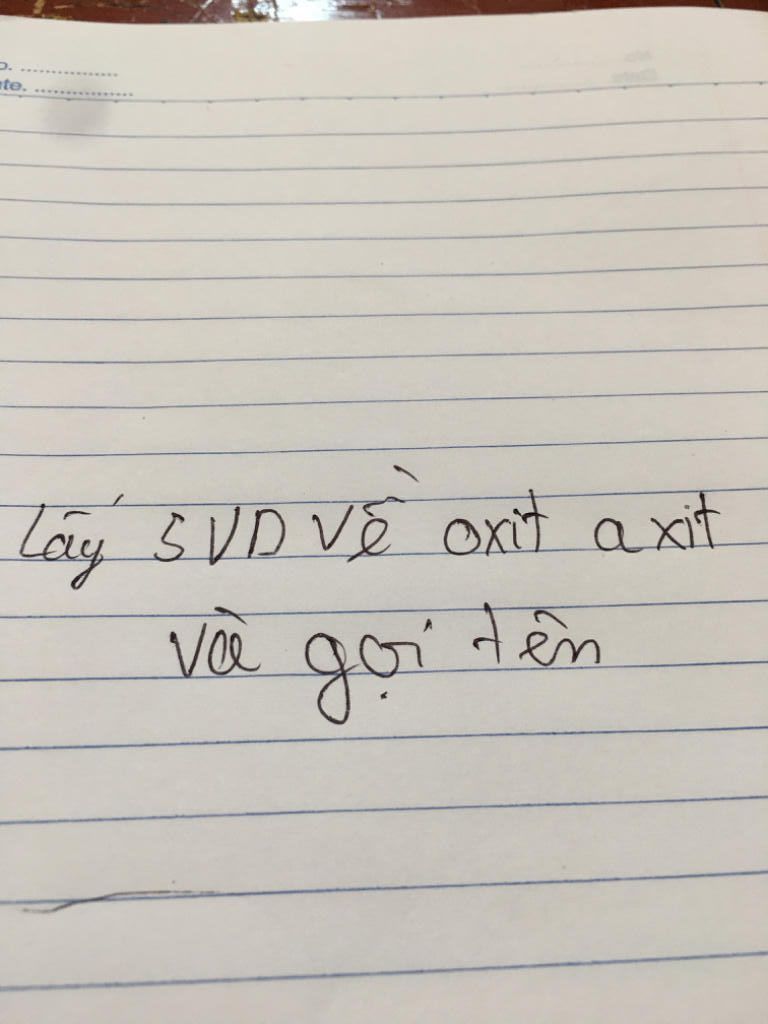 Lấy 5 VD Về oxit axit
và gọi tên